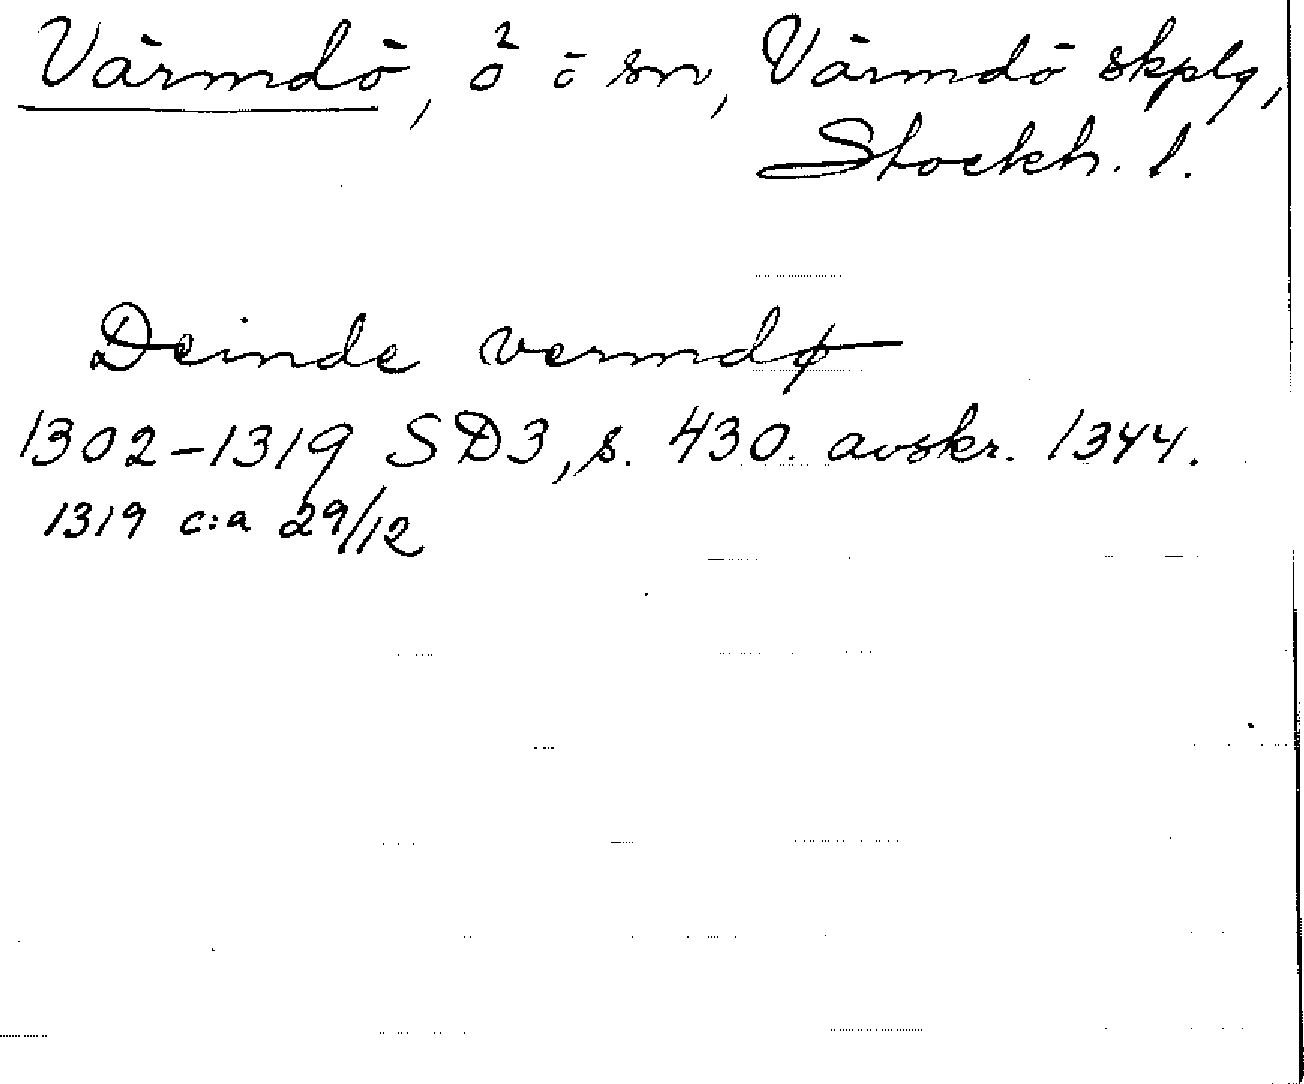 Värmdö, ö² ö sn, Värmdö skplg,
Stockh. l.
Deinde vermdø
1302-1319 SD3, s. 430. avskr. 1344.
1319 c:a 29/12